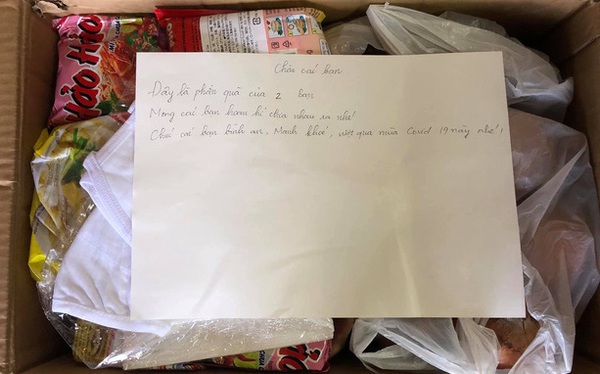 Hảo Hảo
Chào các bạn
Đây là phần quà của 2 bạn
Mong các bạn hoan hỉ chia nhau ra nhé!
Chúc các bạn bình an, Mạnh khoẻ, vượt qua mùa Covid 19 này nhé!